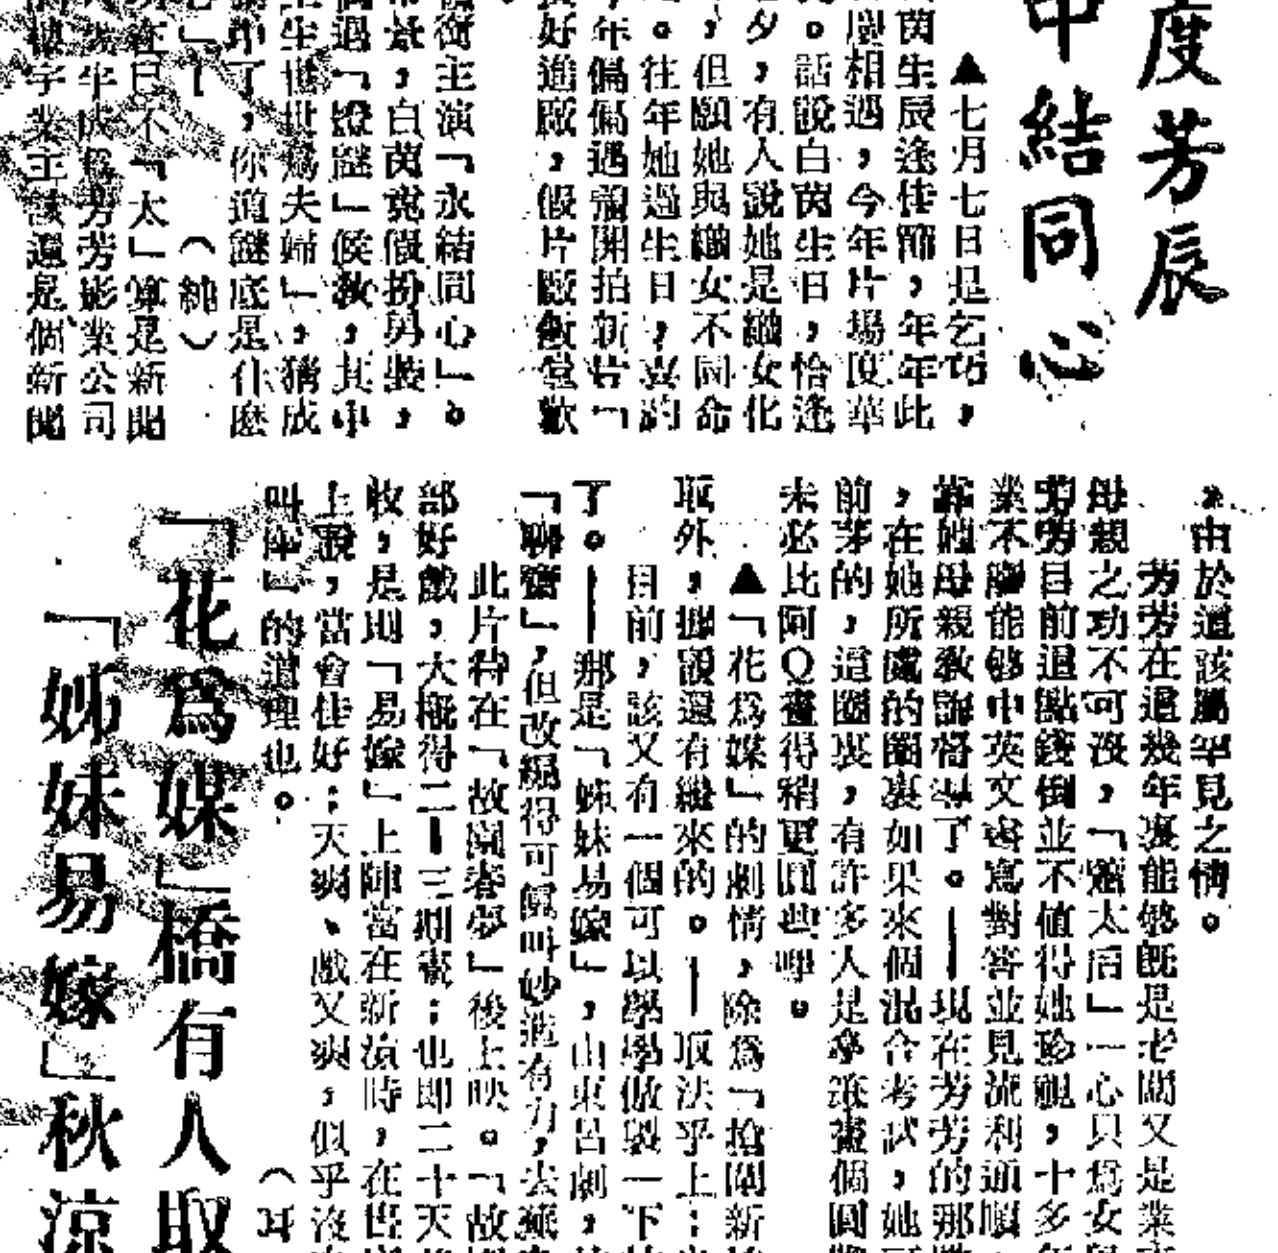 度芳辰
中結同心
▲七月七日是乞巧，
茵生辰逢佳節，年年此
慶相遇，今年片場度華
。話說白茵生日，恰逢
夕，有人說她是織女化
，但願她與織女不同命
。往年她過生日，真的
年偏偏遇着開拍新片「
好進廠，假片廠飯堂歡
主演「永結同心」。
景，白茵竟假扮男裝，
過「燈謎」候教，其中
生世世爲夫婦」，猜成
印了，你道謎底是什麼
」！　　（純）
在已不「太」算是新聞
年成爲芳芳影業公司
字業主該還是個新聞
，由於這該屬罕見之情。
芳芳在這幾年裏能够旣是老闆又是業
母親之功不可沒，「爛太后」一心只爲女
芳芳目前這點錢倒並不值得她珍視，十多
業不離能够中英文書寫對答並見流利通順
她母親敎誨得了。——現在芳芳的那
，在她所處的圈裏如果來個混合考試，她
前茅的，這圈裏，有許多人是拿筆畫個圓
未必比阿Q畫得稍更圓些呷。
▲「花爲媒」的劇情，除爲「搶閘新
取外，據說還有繼來的。——取法乎上；
目前，該又有一個可以學學倣製一下
了。——那是「姊妹易嫁」，山東呂劇，
「聊齋」，但改編得可謂叫妙造有力，去
此片待在「故園春夢」後上映。「故
部好戲，大概得二—三期賣；也即二十天
收，是則「易嫁」上陣當在新涼時，在
上說，當會佳好；天爽、戲又爽，似乎沒
叫座」的道理也。
「花爲媒」橋有人取
「姊妹易嫁」秋涼